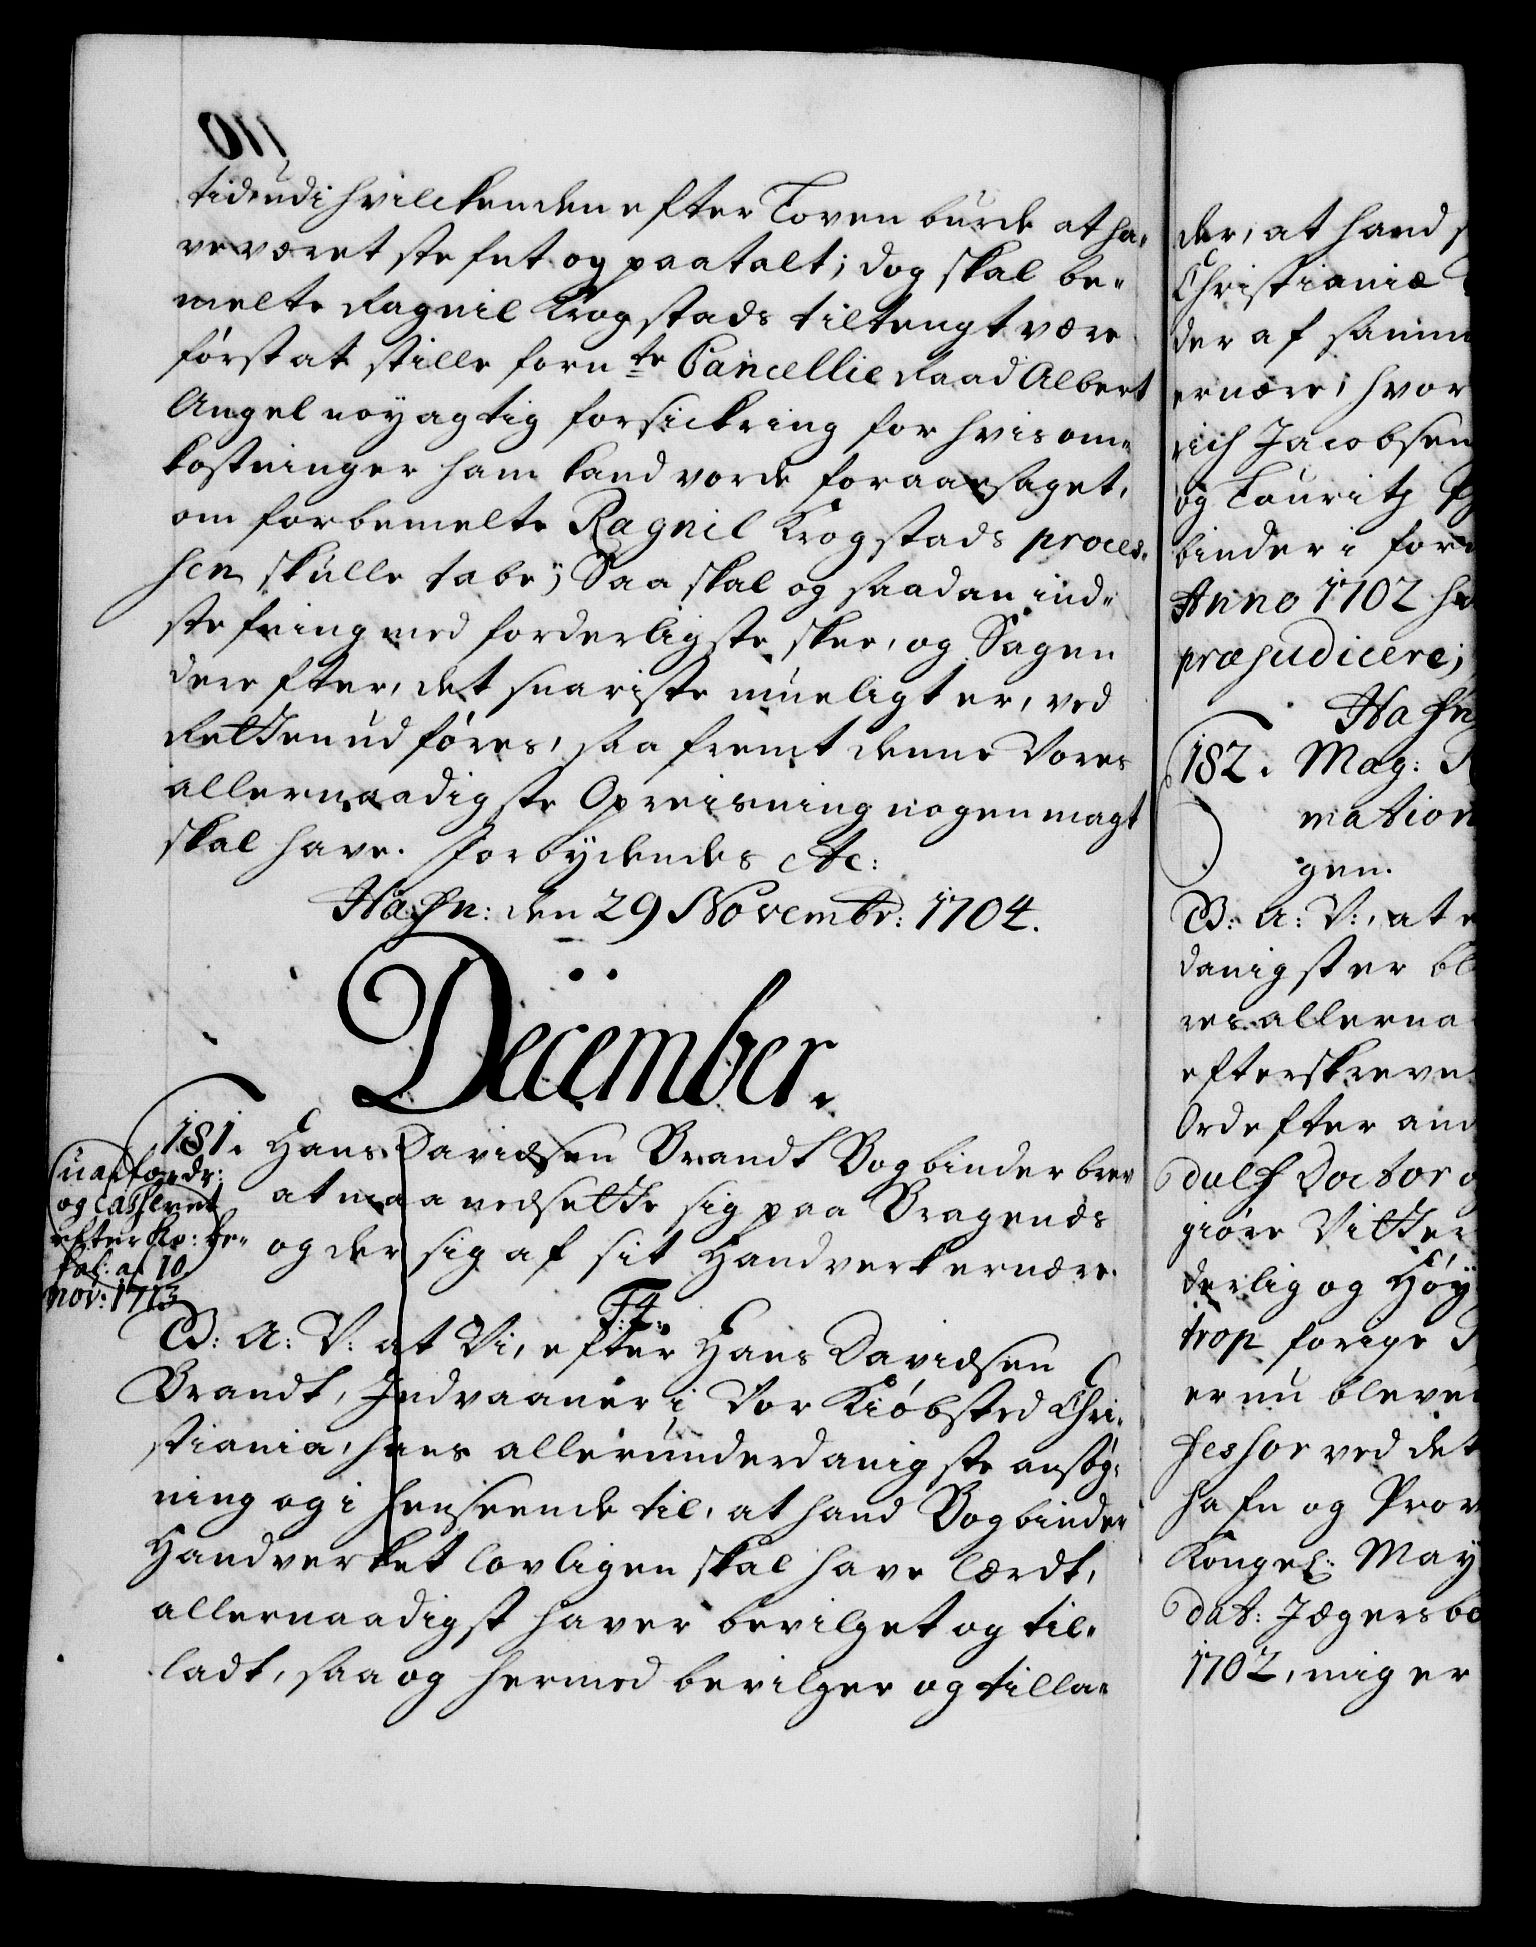 110
tid udi hvilcken den efter Loven burde at ha-
ve været stefnt og paatalt; dog skal be-
melte Ragnil Krogstads tiltengt være
først at stille forn:te Cancellie Raad Albert
Angel nøyagtig forsickring for hvis om-
kostninger ham kand vorde foraarsaget,
om forbemelte Ragnil Krogstads proces-
sen skulle tabe; Saa skal og saadan ind-
stefning med forderligste skee, og Sagen
derefter, det snariste mueligt er, ved
Retten udføres, saa fremt denne Vores
allernaadigste Opreisning nogen magt
skal have. Forbydendes etc:
Hafn: den 29 Novembr: 1704.
December.
181. Hans Davidsen Brandt Bogbinder brev
at maa nedsette sig paa Bragenæs
og der sig af sit Handverk ernære.
og Casseret
efter Kō: be-
fal: af 10
nov: 1713
F: 4.
B: A: V: at Vi, efter Hans Davidsen
Brandt, Indvaaner i Vor Kiøbsted Chri-
stiania, hans allerunderdanigste ansøg-
ning og i henseende til, at hand Bogbinder
Handverket lovligen skal have lærdt,
allernaadigst haver bevilget og til-
ladt, saa og hermed bevilger og tilla-
der, at hand
Christianiæ
der af samm
ernære; hvor
rich Jacobsen
og Lauritz
binder i for
Anno 1702
præjudicere;
Hafn
182. Mag:
mation
gen.
B: A: V:, at
danigst er bl
res allerna
efterskreve
Ord efter and
dolf Doctor
giøre Vitter
derlig og Høy
trop forige
er nu bleve
fessor ved det
hafn og Prov
Kongel: May
dat: Jægersbo
1702, mig er